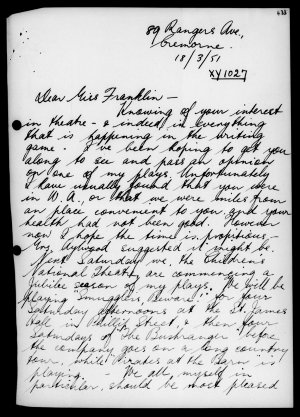 433
89 Rangers Ave,
Cremorne.
18/3/51
XY1027
Dear Miss Franklin —
Knowing of your interest
in theatre - & indeed in everything
that is happening in the writing
game. I've been hoping to get you
along to see and pass an opinion
on one of my plays. Unfortunately
I have usually found that you were
in W.A., or that we were miles from
an place convenient to you and your
health had not been good. However
now I hope the time is propitious -
Guy Aywood suggested it might be.
Next Saturday we, the Children's
National Theatre are commencing a
Jubilee season of my plays. We will be
playing "Smugglers Beware" for four
Saturday afternoons at the St. James
Hall in Phillip Street, & then four
Saturdays of "The Bushranger" before
the company goes on a long country
tour, while "Pirates at the Barn" is
playing. We all, myself in
particular, should be most pleased